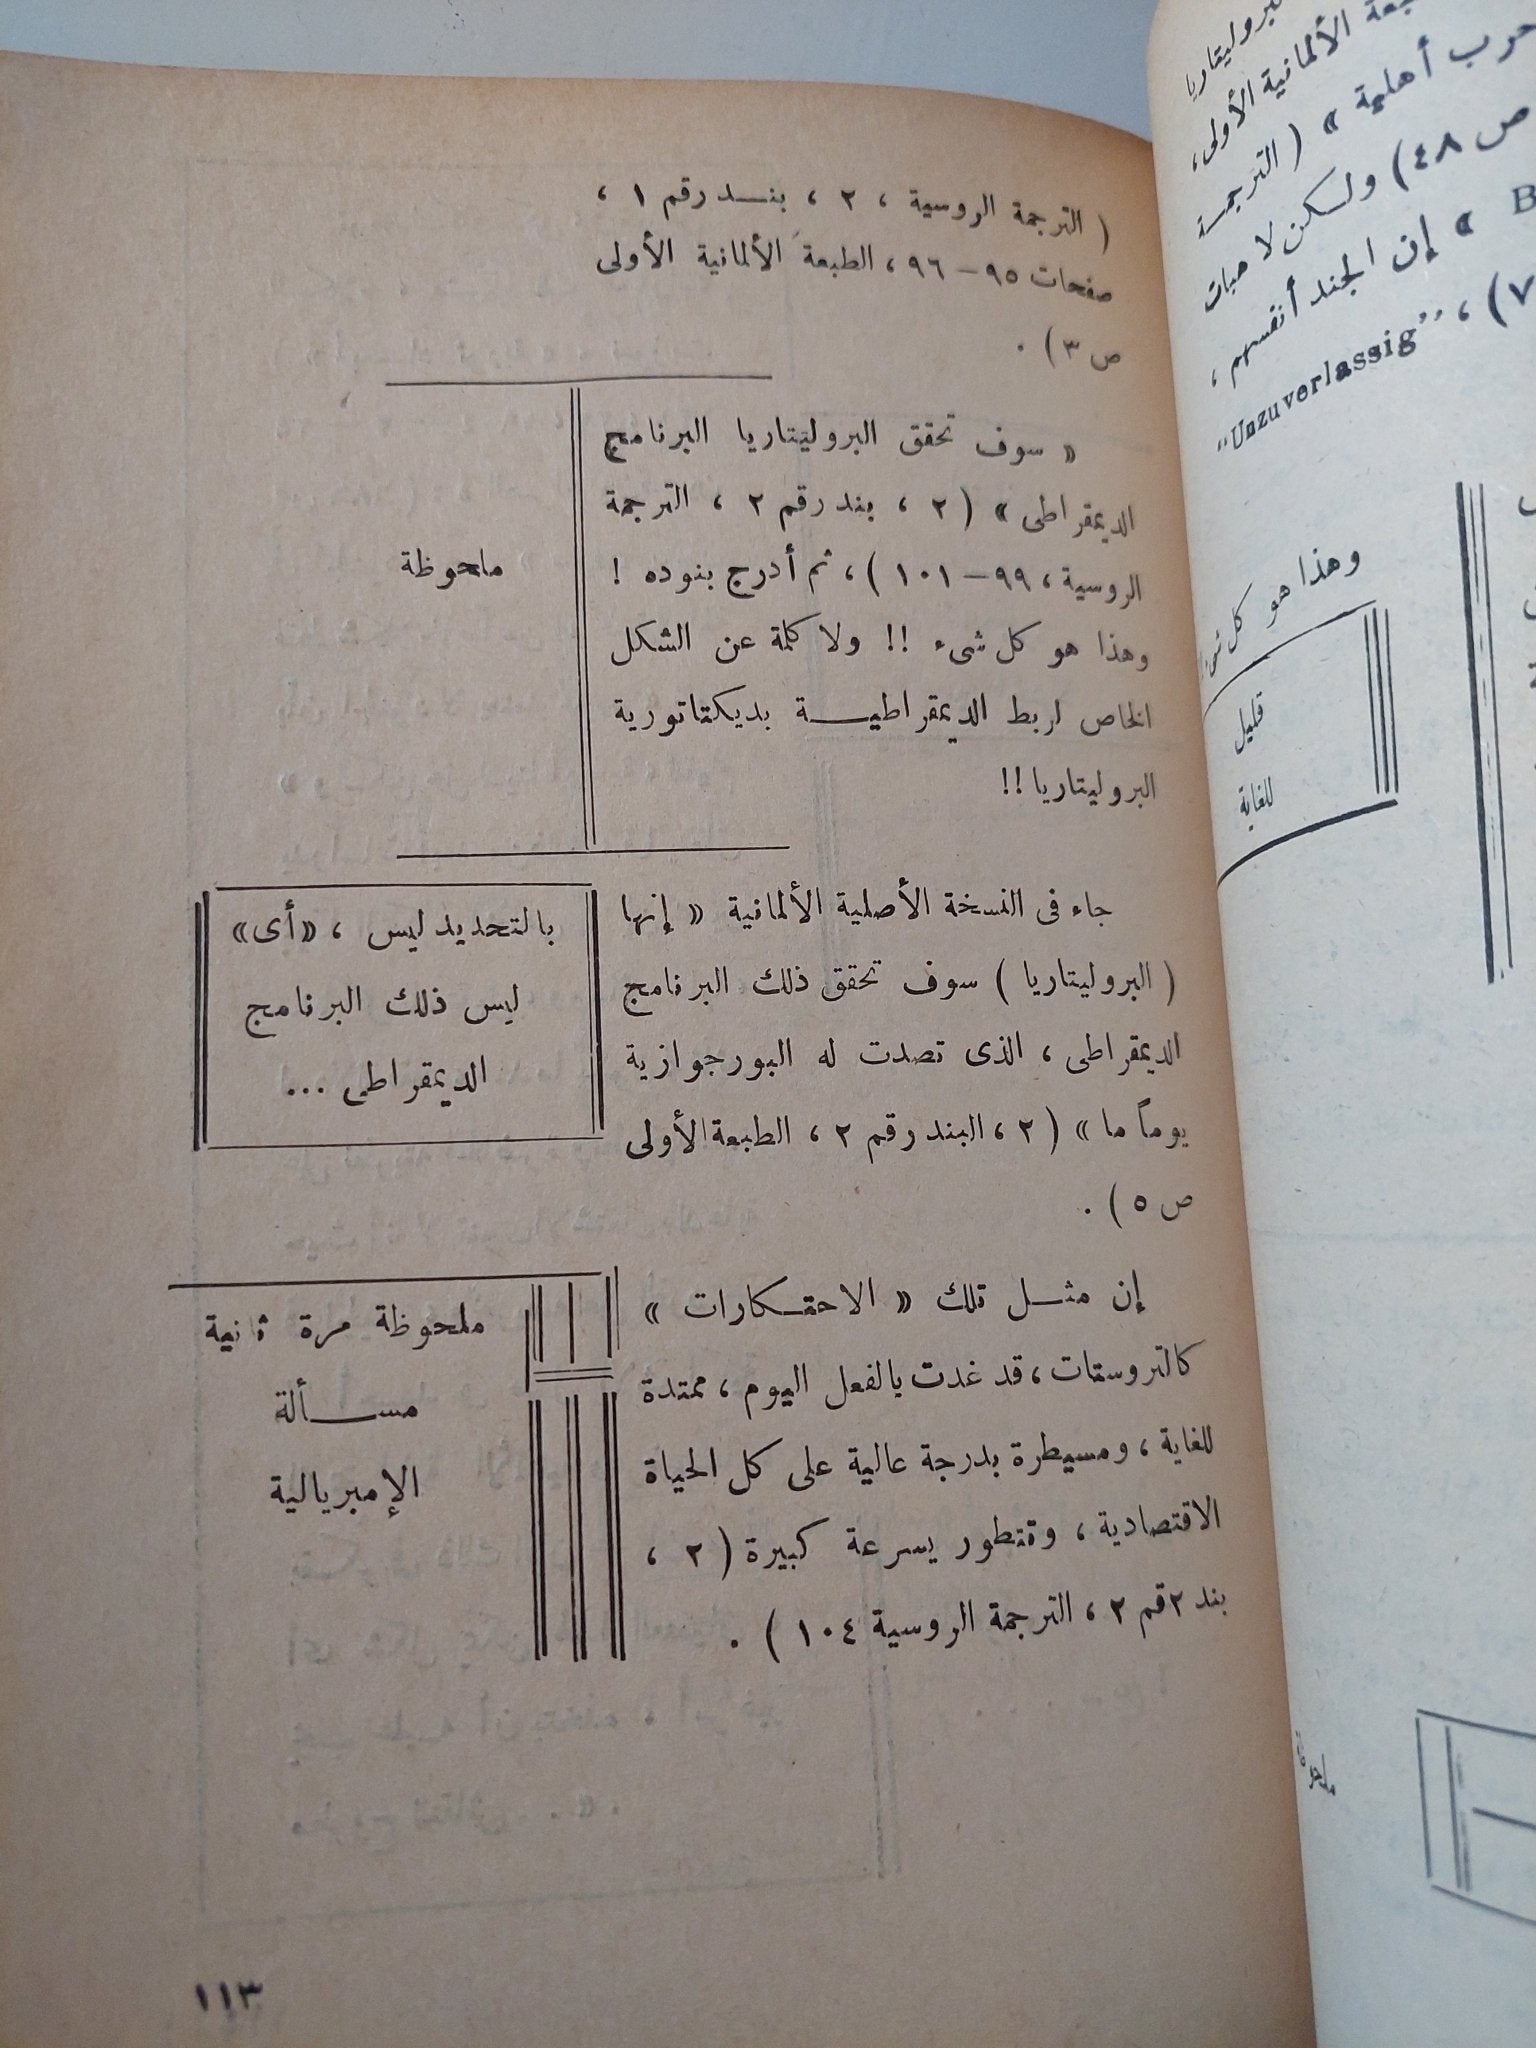 ( الترجمة الروسية ، ٢ ، بنـــد رقم ١ ،
صفحات ٩٥ – ٩٦ ، الطبعة الألمانية الأولى
ص ٣ ) .
« سوف تحقق البروليتاريا البرنامج
الديمقراطى » ( ٢ ، بند رقم ٢ ، الترجمة
الروسية ، ٩٩ – ١٠١ ) ، ثم أدرج بنوده !
وهذا هو كل شىء !! ولا كلمة عن الشكل
الخاص لربط الديمقراطيـــة بديكتاتورية
البروليتاريا !!
ملحوظة
جاء فى النسخة الأصلية الألمانية « إنها
( البروليتاريا ) سوف تحقق ذلك البرنامج
الديمقراطى ، الذى تصدت له البورجوازية
يوماً ما » ( ٢ ، البند رقم ٢ ، الطبعة الأولى
ص ٥ ) .
بالتحديد ليس ، «أى»
ليس ذلك البرنامج
الديمقراطى ...
إن مثـــل تلك « الاحتـكارات »
كالتروستات ، قد غدت بالفعل اليوم ، ممتدة
للغاية ، ومسيطرة بدرجة عالية على كل الحياة
الاقتصادية ، وتتطور بسرعة كبيرة ( ٢ ،
بند ٢قم ٢ ، الترجمة الروسية ١٠٤ ) .
ملحوظة مرة ثانية
مســـألة
الإمبريالية
١١٣
الألمانية الأولى ،
حرب أهلية » ( الترجمـــة
ص ٤٨ ) ولـكن لا هبات
« إن الجند أنفسهم ،
"Unzuverlassig" ،
وهذا هو كل
قليل
للغاية